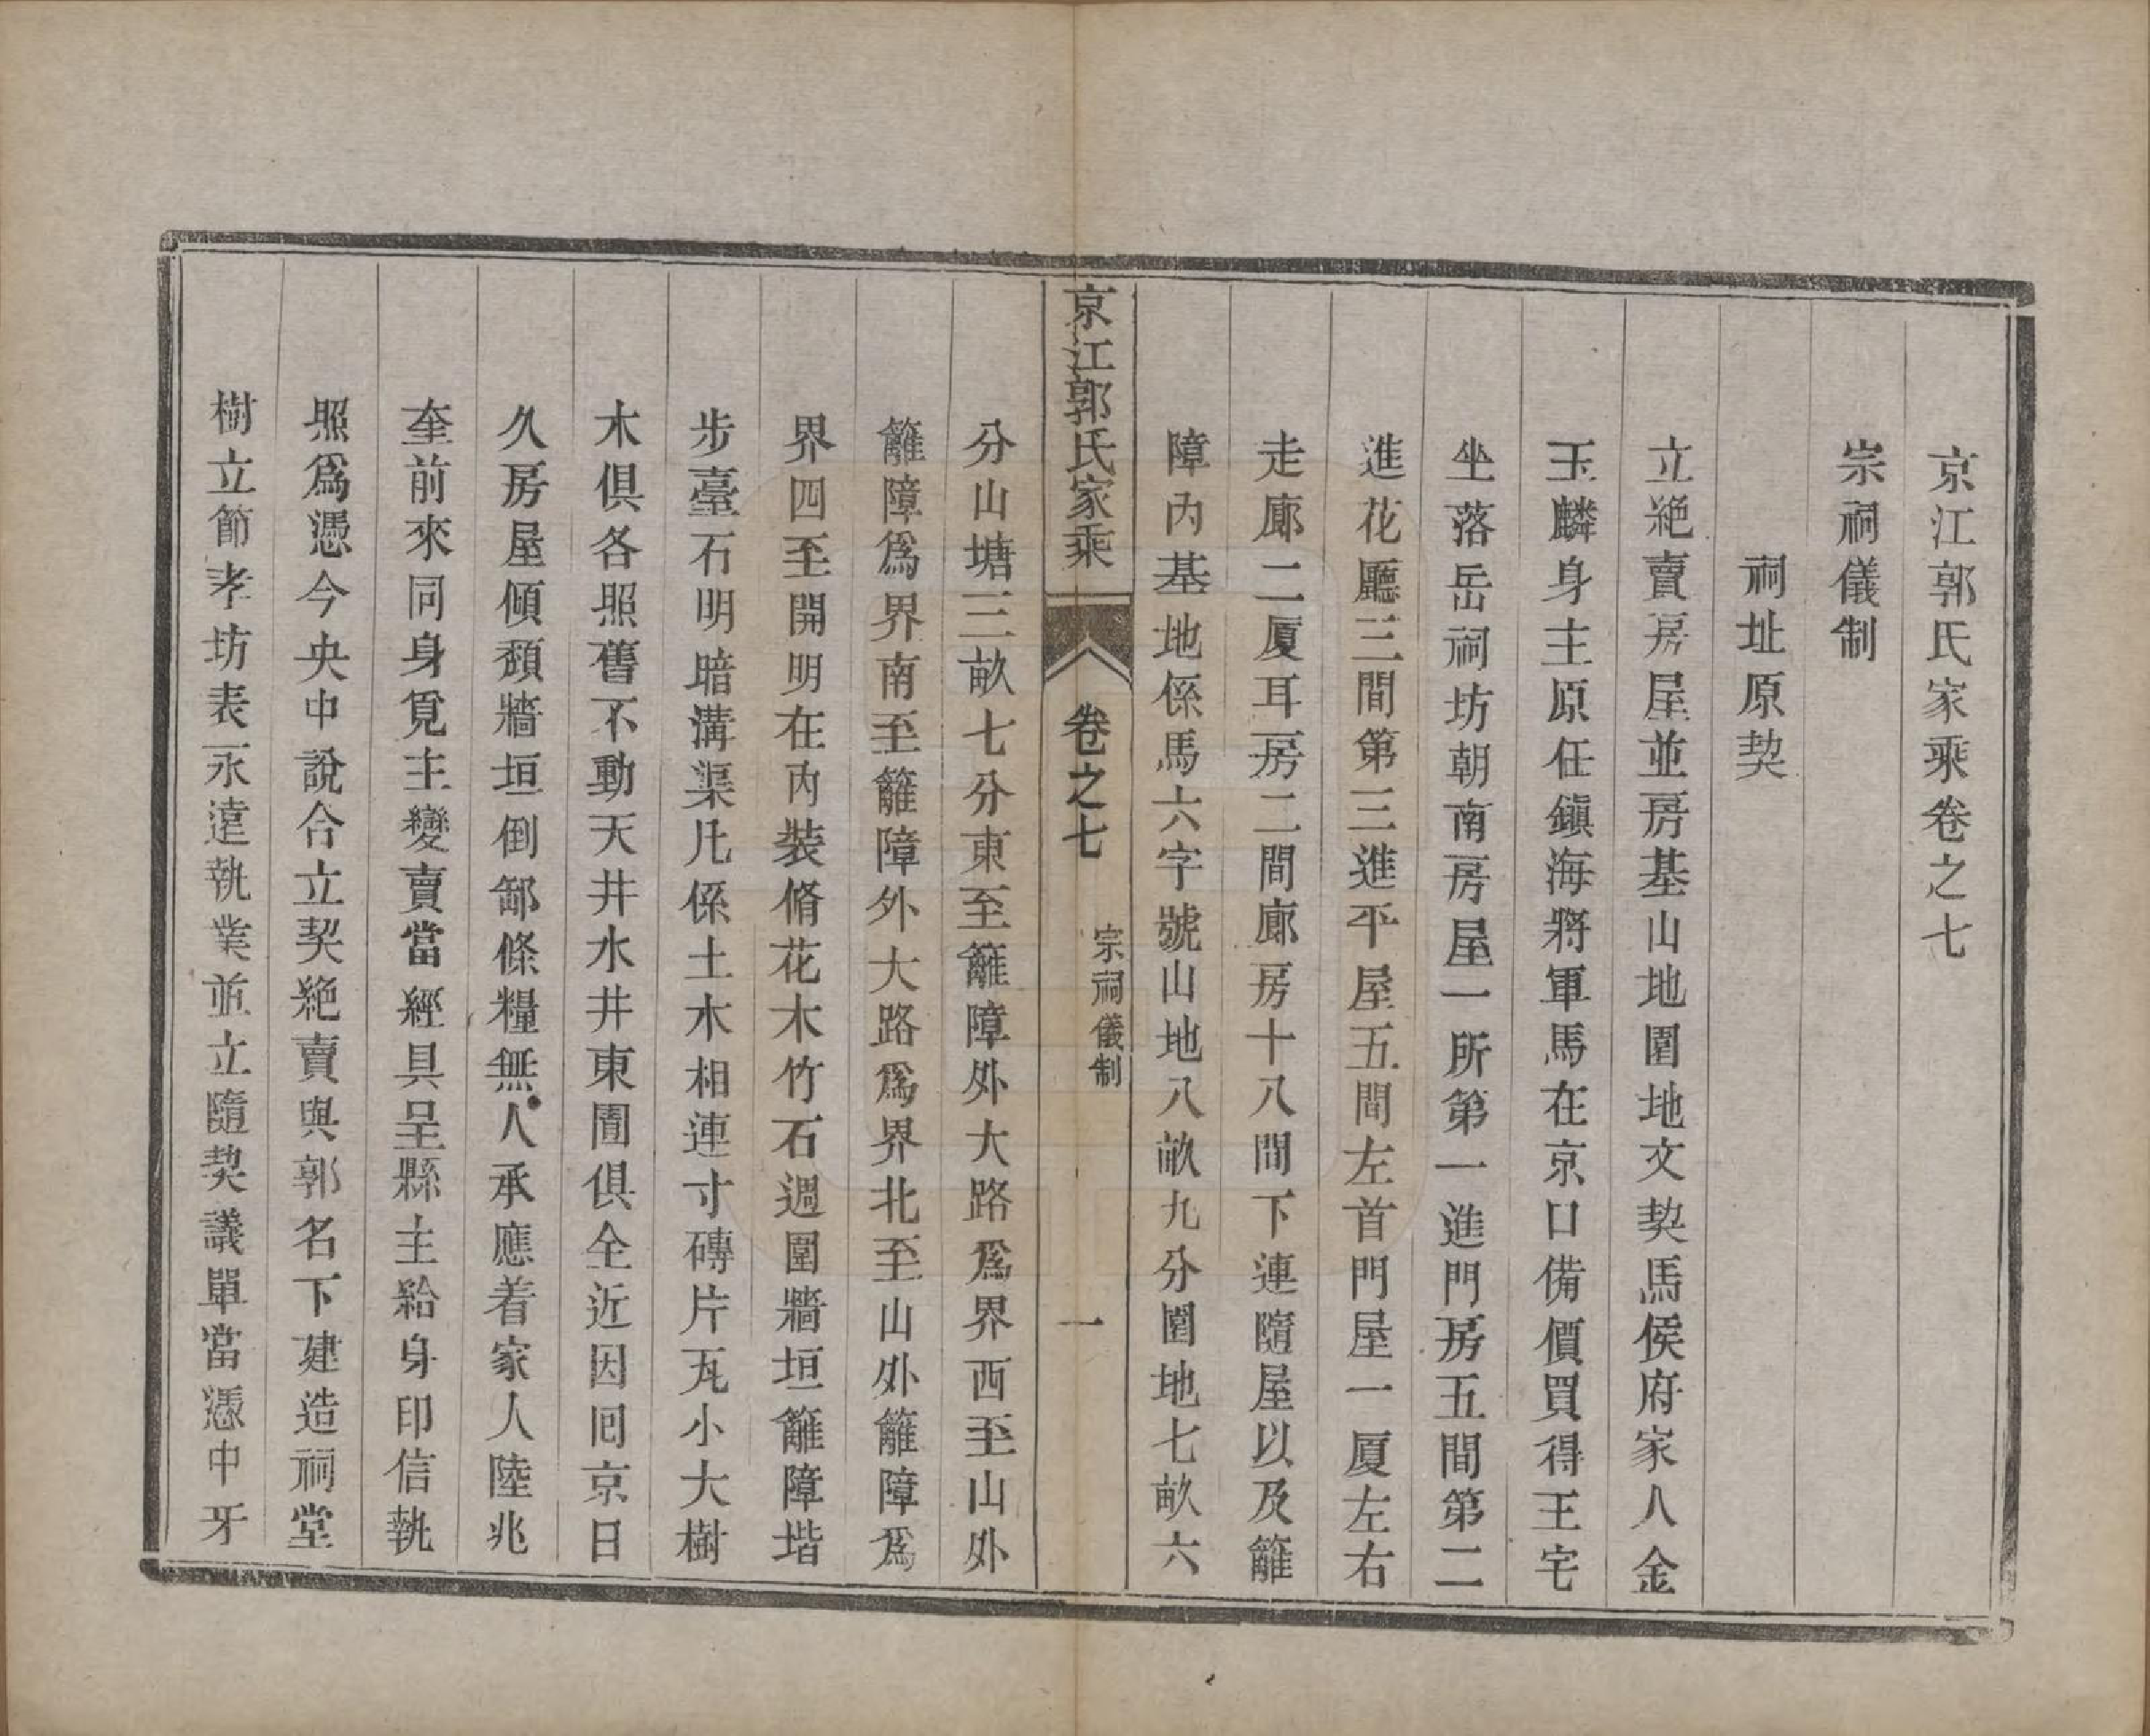 京江郭氏家乘卷之七
宗祠儀制
祠址原契
立絕賣房屋並房基山地園地文契馬侯府家人金
玉麟身主原任鎮海將軍馬在京口備價買得王宅
坐落岳祠坊朝南房屋一所第一進門房五間第二
進花廳三間第三進平屋五間左首門屋一厦左右
走廊二厦耳房二間廊房十八間下連隨屋以及籬
障內基地係馬六字號山地八畝九分園地七畝六
京江郭氏家乘
卷之七
宗祠儀制
一
分山塘三畝七分東至籬障外大路爲界西至山外
籬障爲界南至籬障外大路爲界北至山外籬障爲
界四至開明在內裝脩花木竹石週圍牆垣籬障堦
步臺石明暗溝渠凡係土木相連寸磚片瓦小大樹
木俱各照舊不動天井水井東圊俱全近因囘京日
久房屋傾頹牆垣倒卸條糧無人承應着家人陸兆
奎前來同身覓主變賣當經具呈縣主給身印信執
照爲憑今央中說合立契絕賣與郭名下建造祠堂
樹立節孝坊表永遠執業並立隨契議單當憑中牙